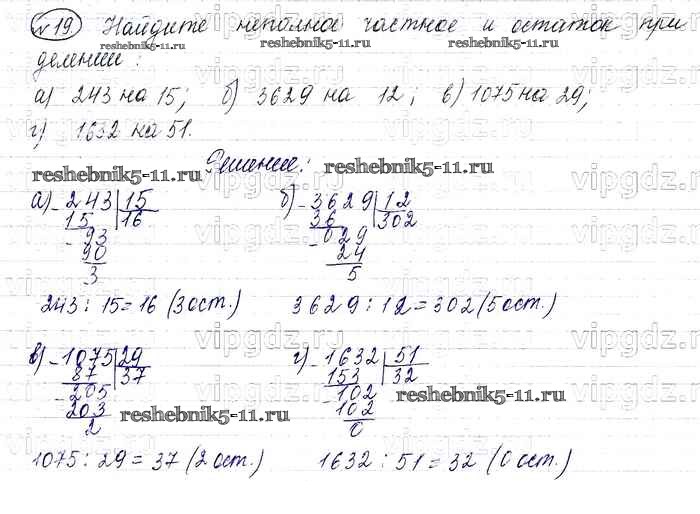 №19. Найдите неполное частное и остаток при
reshebnik5-11.ru reshebnik5-11.ru
делении:
а) 243 на 15; б) 3629 на 12; в) 1075 на 29;
г) 1632 на 51.
Решение:
reshebnik5-11.ru reshebnik5-11.ru
vipgdz.ru
а) - 243 | 15
15 | 16
- 93
90
3
243 : 15 = 16 (3 ост.)
б) - 3629 | 12
36 | 302
- 029
24
5
3629 : 12 = 302 (5 ост.)
в) - 1075 | 29
87 | 37
- 205
203
2
reshebnik5-11.ru
1075 : 29 = 37 (2 ост.)
г) - 1632 | 51
153 | 32
- 102
102
0
reshebnik5-11.ru
1632 : 51 = 32 (0 ост.)